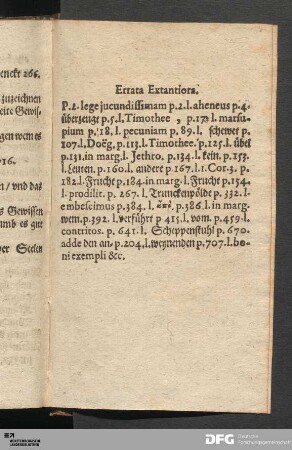 enckt 268.
zuzeichnen
eite Gewis-
gen wem es
716.
en / und das
s Gewissen
umb es gut
er Seelen
Errata Extantiora.
P. 2. lege jucundissimam p. 2. l. aheneus p. 4.
überzeuge p. 5. l. Timothee, p. 17. l. marsu-
pium p. 18. l. pecuniam p. 89. l. schewet p.
107. l. Doëg, p. 113. l. Timothee. p. 125. l. übel
p. 131. in marg. l. Jethro. p. 134. l. kein. p. 153.
l. Leuten. p. 160. l. andere p. 167. l. 1. Cor. 3. p.
182. l. Frucht p. 184. in marg. l. Frucht p. 154.
l. prodiit. p. 267. l. Trunckenpölde p. 332. l.
embescimus p. 384. l. ἀπὸ. p. 386. l. in marg.
wem. p. 392. l. verführt p. 415. l. vom. p. 459. l.
contritos. p. 641. l. Scheppenstuhl p. 670.
adde den an. p. 204. l. weynenden p. 707. l. bo-
ni exempli &c.
DFG
Deutsche
Forschungsgemeinschaft